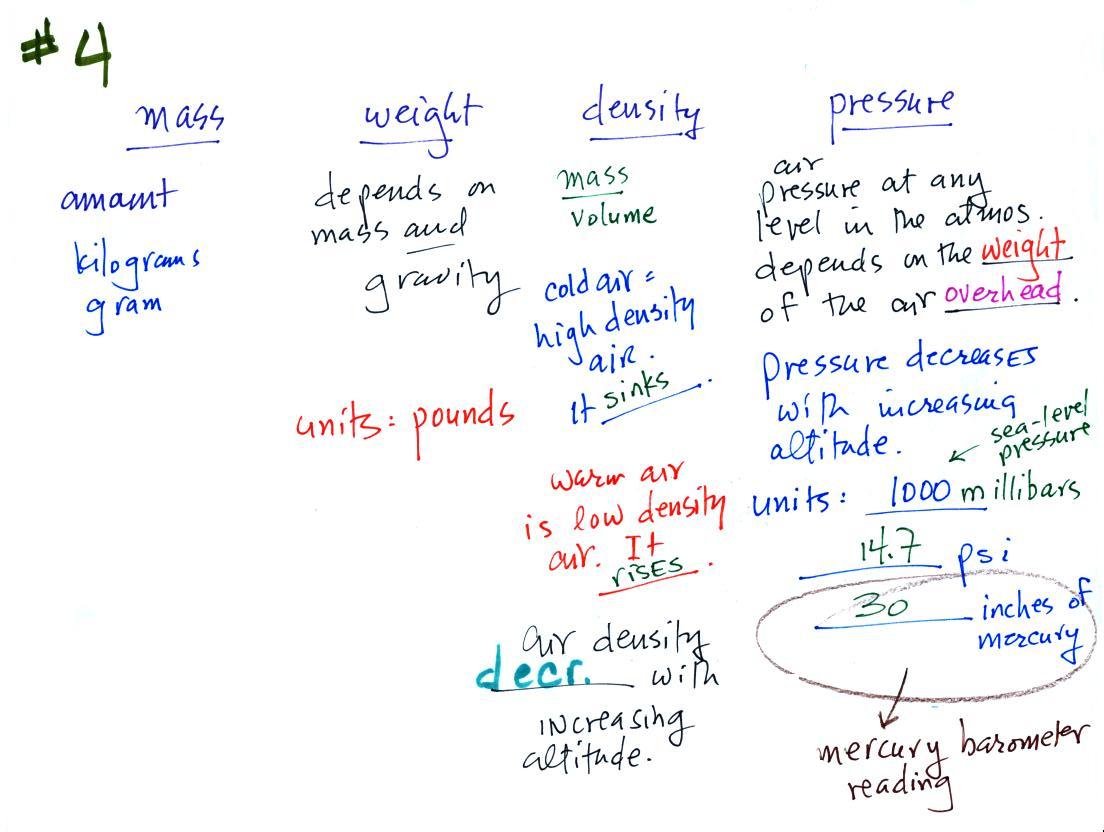 #4
mass
amount
kilograms
gram
weight
depends on
mass and
gravity
units: pounds
density
mass
volume
cold air =
high density
air.
It sinks.
warm air
is low density
air. It
rises.
air density
decr. with
increasing
altitude.
pressure
air
pressure at any
level in the atmos.
depends on the weight
of the air overhead.
Pressure decreases
with increasing
altitude.
sea-level
pressure
units: 1000 millibars
14.7 psi
30 inches of
mercury
mercury barometer
reading